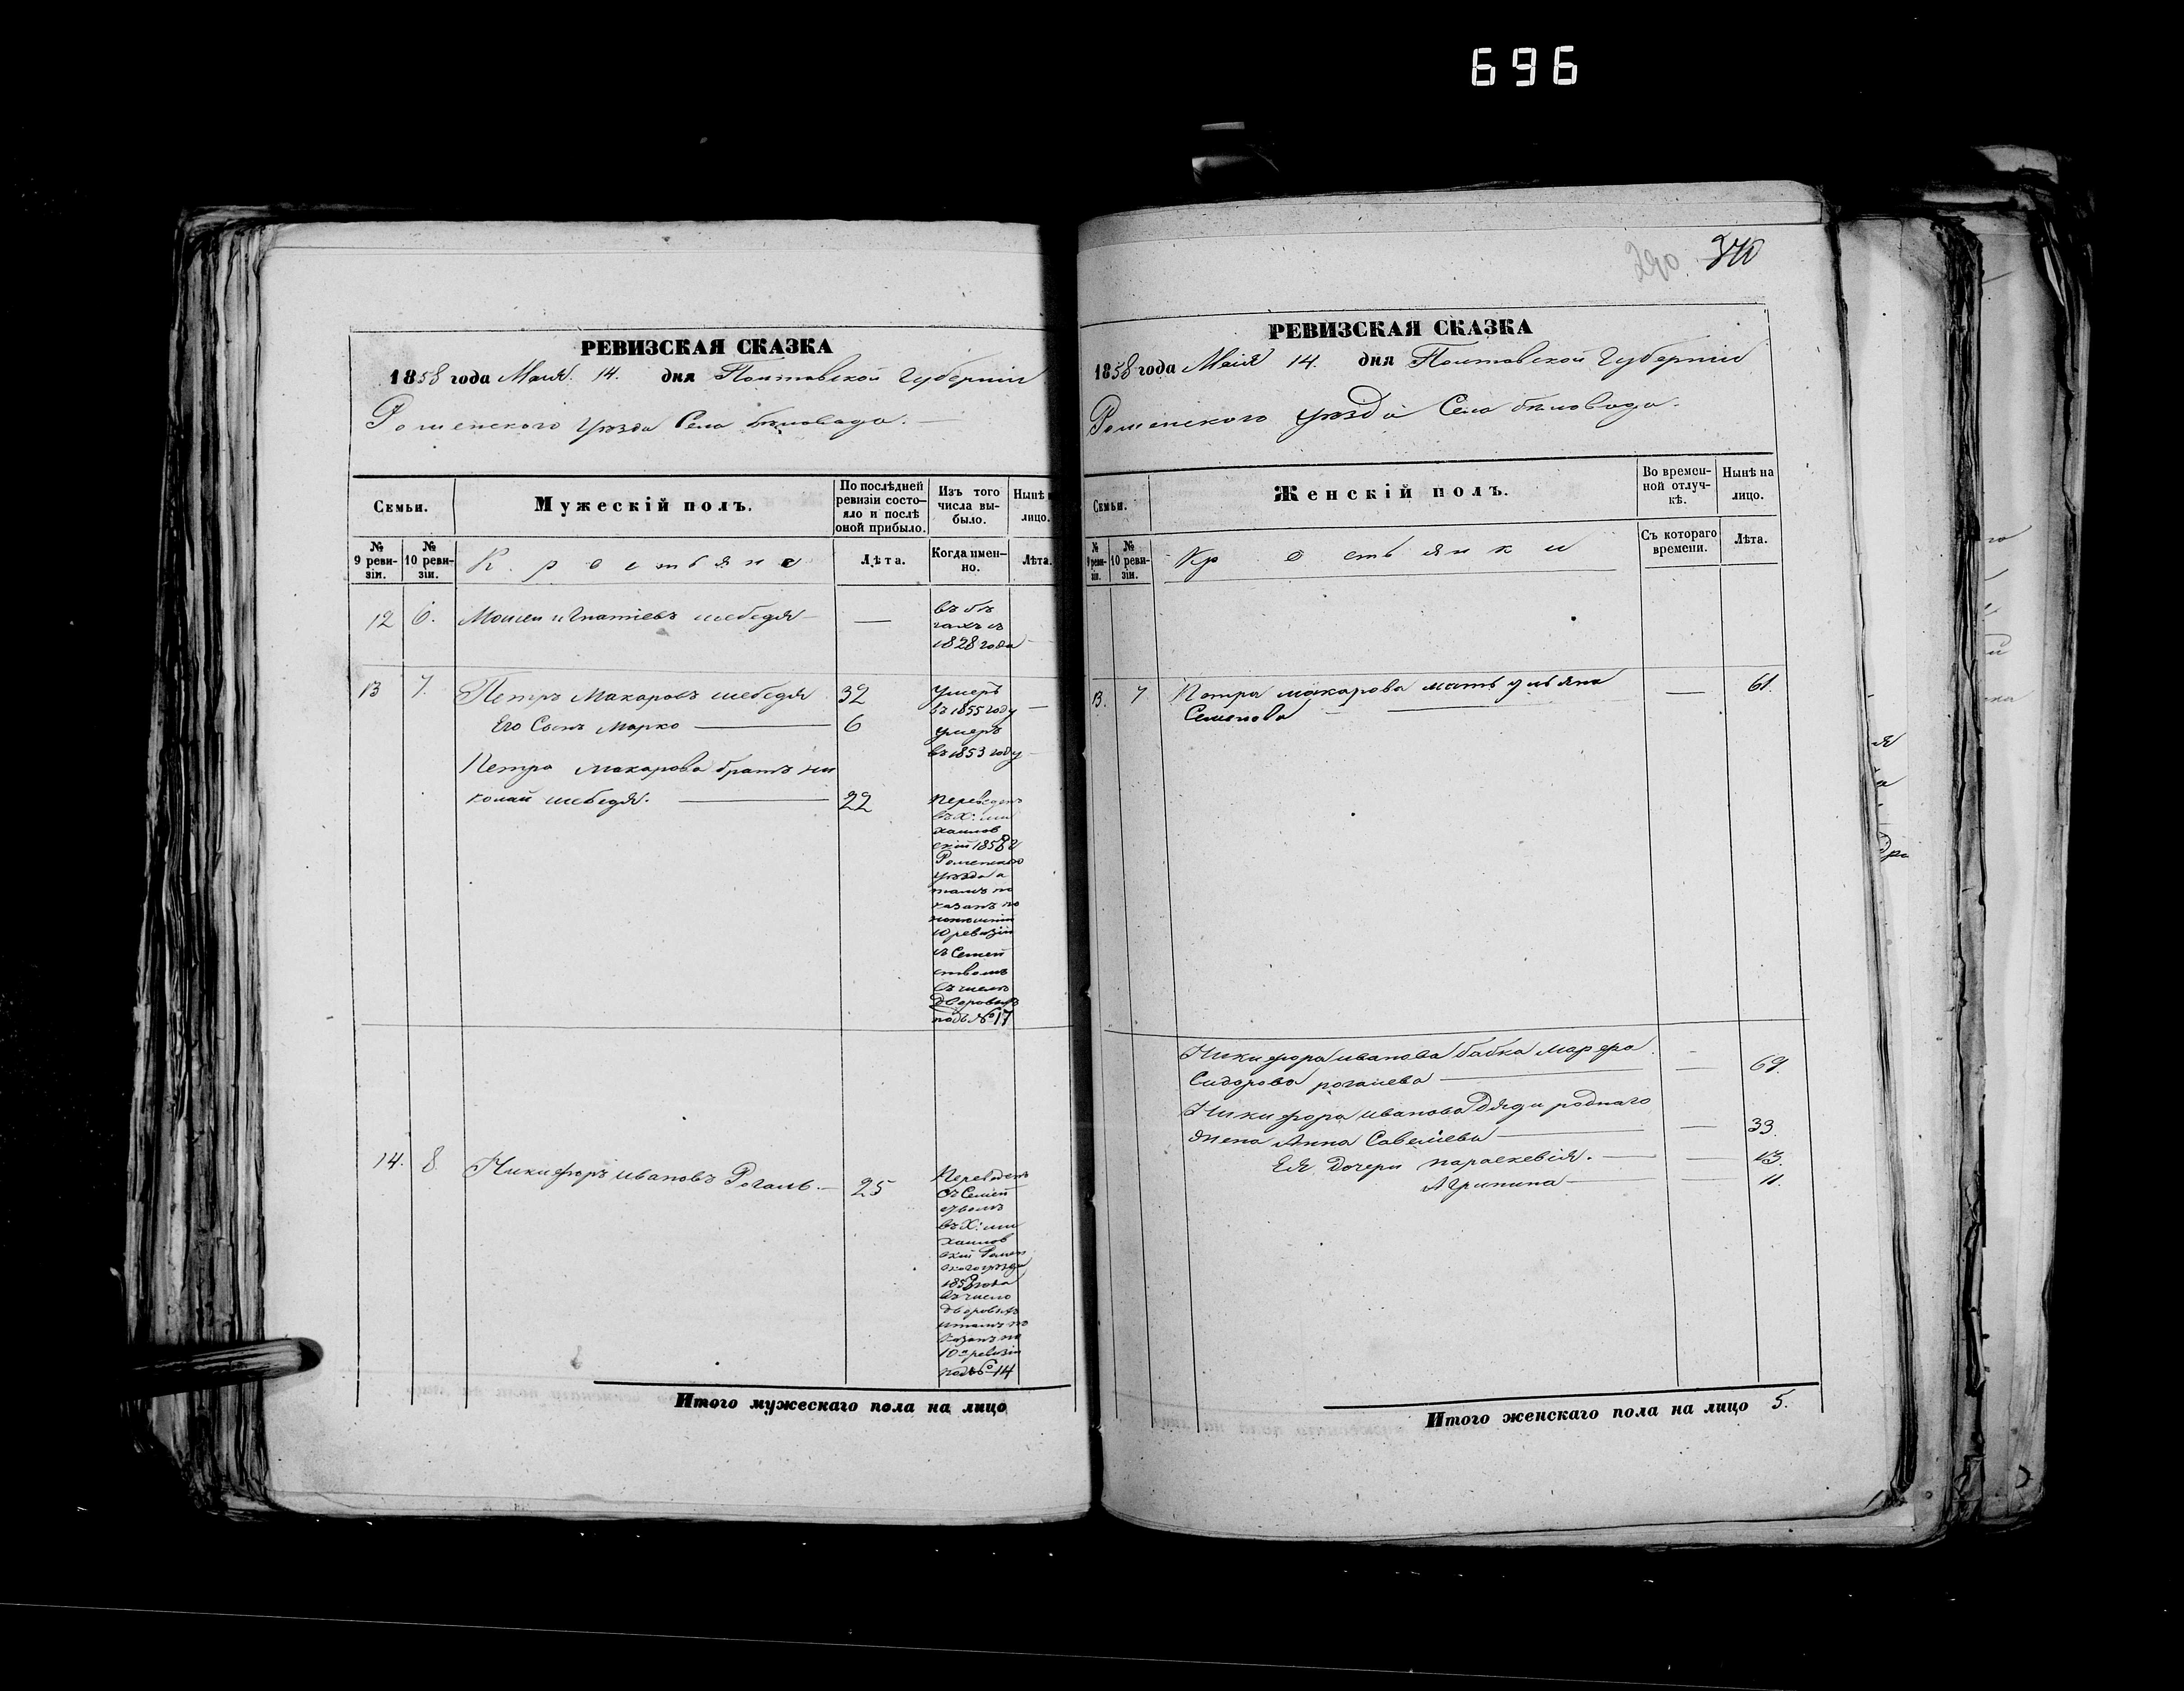 696
290 370
РЕВИЗСКАЯ СКАЗКА
1858 года Маія 14. дня Полтавской Губерніи
Роменского уѣзда Села Бѣловода.
Семьи.
Мужескій полъ.
По послѣдней ревизіи состояло и послѣ оной прибыло.
Изъ того числа выбыло.
Нынѣ лицо.
№ 9 ревизіи.
№ 10 ревизіи.
Крестьяне
Лѣта.
Когда именно.
Лѣта.
12 6. Моисей Игнатіевъ Шебедя —
въ бѣ
гахъ съ
1828 года
13 7. Петръ Макаровъ Шебедя 32
умеръ
въ 1855 году
Его Сынъ Марко 6
умеръ
въ 1853 году
Петра Макарова братъ Ни
колай Шебедя. 22
Переведенъ
въ Х: Ми
хайлов
скій 1858 г
Роменского
уѣзда а
тамъ по
казанъ по
10 ревизіи
съ Семей
ствомъ
въ числѣ
дворовыхъ
подъ № 17
14. 8. Никифоръ Ивановъ Рогаль. 25
Переведенъ
съ Семей
ствомъ
въ Х: Ми
хайлов
скій Ромен
ского уѣзда
1858 года
въ число
дворовыхъ
и тамъ по
казанъ по
10й ревизіи
подъ № 14
Итого мужескаго пола на лицо
РЕВИЗСКАЯ СКАЗКА
1858 года Маія 14. дня Полтавской Губерніи
Роменского уѣзда Села Бѣловода.
Семьи.
Женскій полъ.
Во временной отлучкѣ.
Нынѣ на лицо.
№ 9 ревизіи.
№ 10 ревизіи.
Крестьянки
Съ котораго времени.
Лѣта.
13. 7 Петра Макарова мать Ульяна — 61.
Семенова
Никифора Иванова бабка Марфа
Сидорова Рогалева — 69.
Никифора Иванова дяди роднаго
жена Анна Савельева — 33.
Ея дочери Параскевія. — 13.
Агрипина — 11.
Итого женскаго пола на лицо 5.